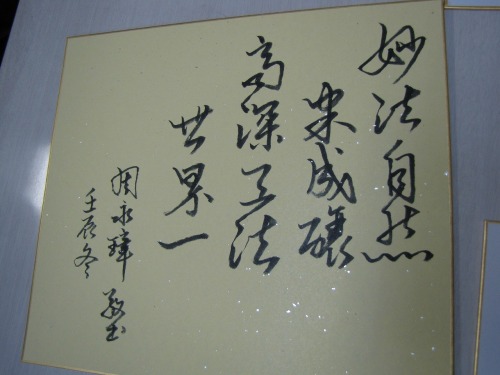 妙法自然
東成釀
高深工法
世界一
周永 敬書
壬辰冬